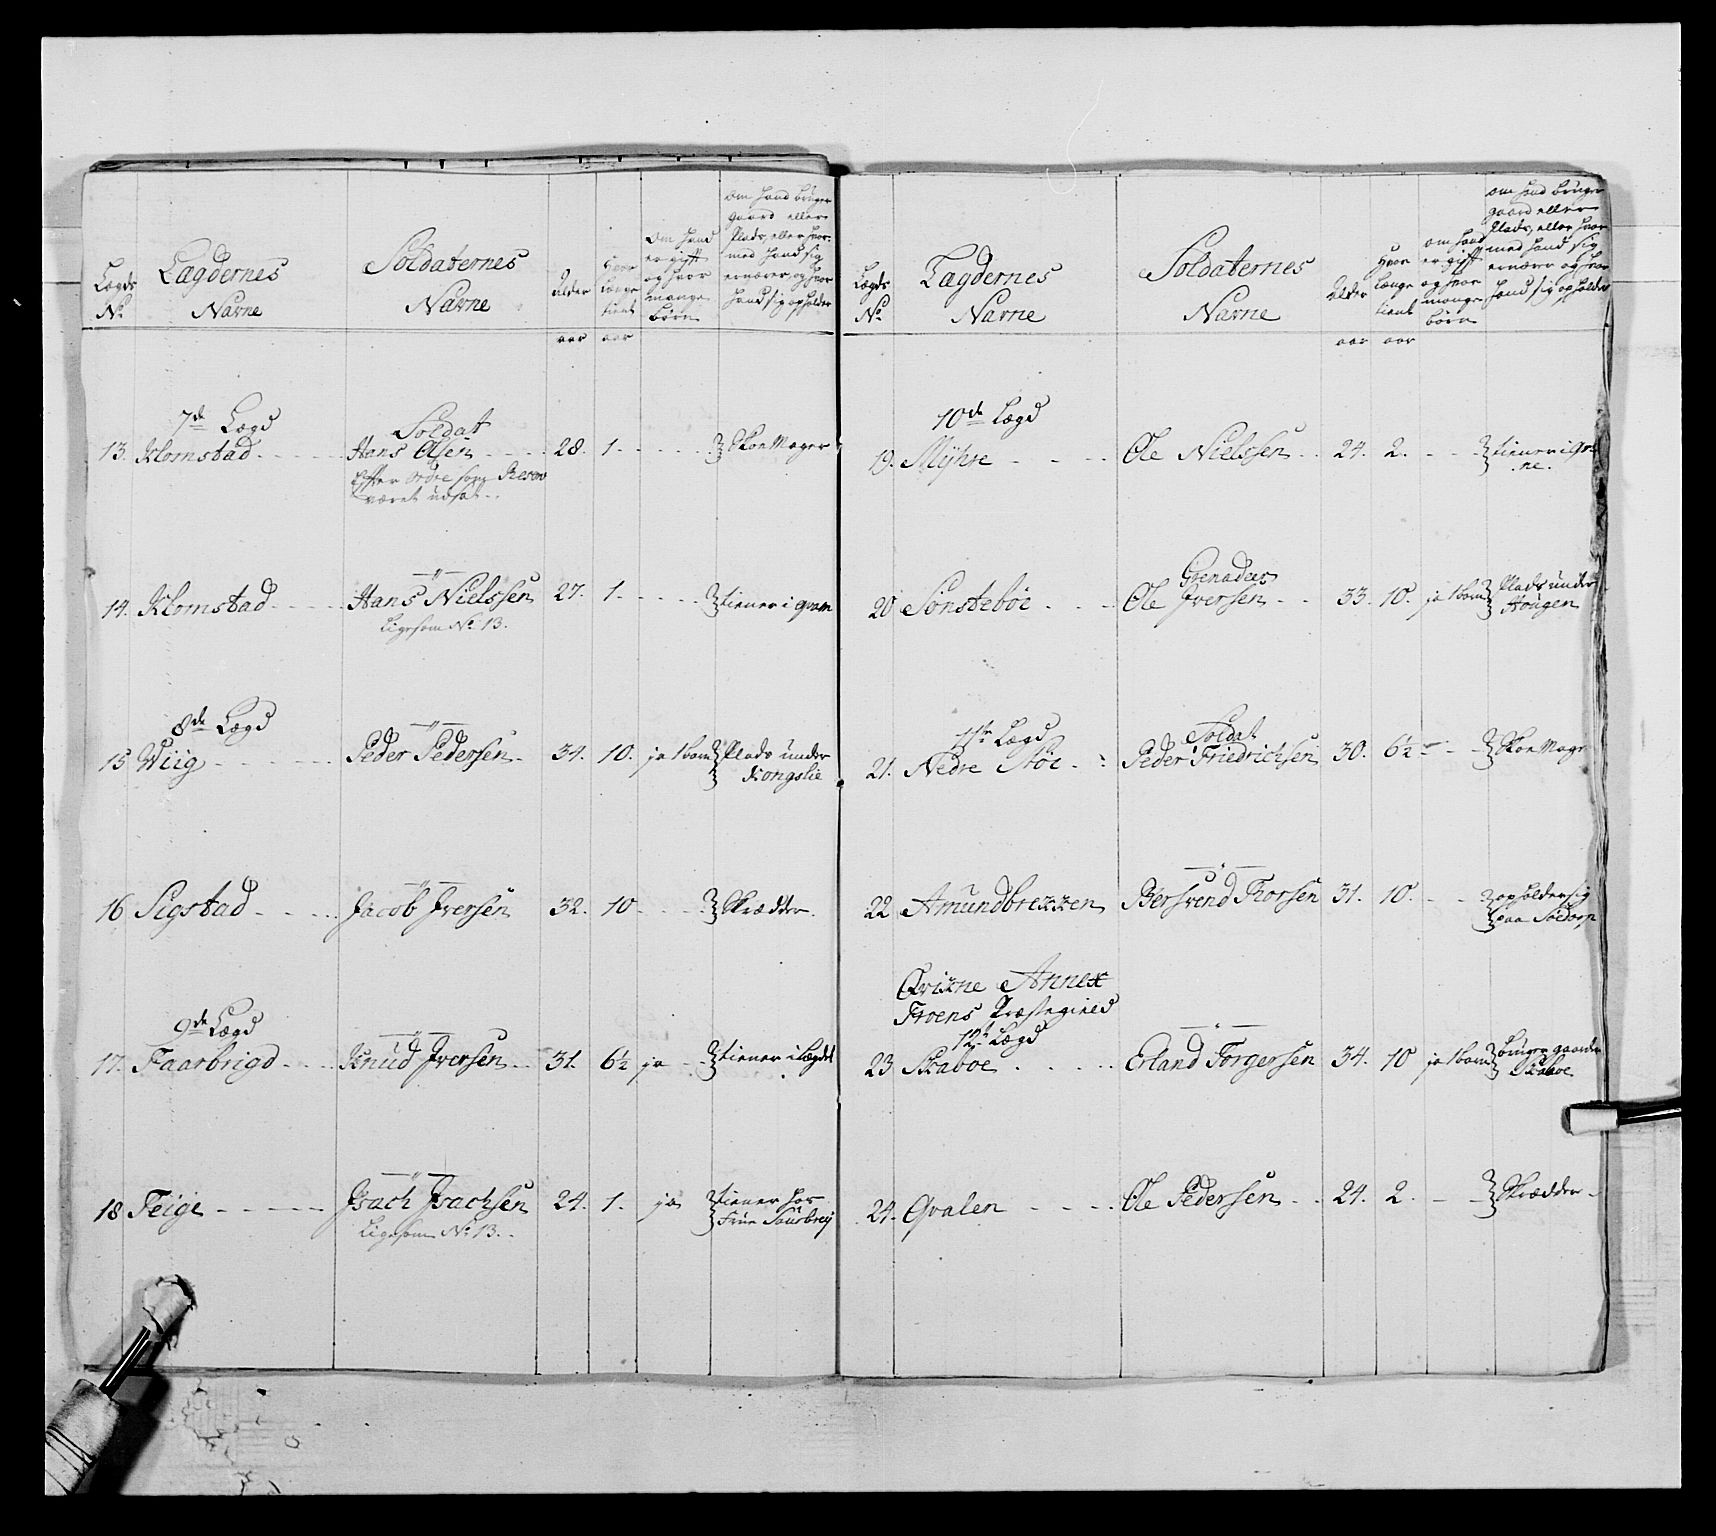 Lægds
No
Lægdernes
Navne
Soldaternes
Navne
Alder
Hvor
længe
tient
Om hand
er gift
og hvor
mange
børn
om hand bruger
gaard eller
Plads, eller hvor-
med hand sig
ernærer, og hvor
hand sig opholder
aar aar
7de Lægd
Soldat
13. Klomstad Hans Olsen 28. 1. Skoemager
Efter ordre som Reserv
været udsat
14. Klomstad Hans Nielssen 27. 1. tiener i Qvam
Ligesom No 13.
8de Lægd
15 Wiig Peder Pedersen 34. 10. ja 1 barn Plads under
Kongslie
16 Sigstad Jacob Iversen 32. 10 Skrædder.
9de Lægd
17. Faarbrigd Knud Iversen 31. 6½ ja tiener i Lægdet
18 Teige Isach Isachsen 24. 1. ja tiener hos
Ligesom No 13. Frue
Lægds
No
Lægdernes
Navne
Soldaternes
Navne
Alder
Hvor
længe
tient
om hand
er gift
og hvor
mange
børn
om hand bruger
gaard eller
Plads, eller hvor
med hand sig
ernærer og hvor
hand sig opholder
aar aar
10de Lægd
19. Myhre Ole Nielssen 24. 2. tiener i
ne.
Grenadeer
20 Sønstebøe Ole Iversen 33. 10. ja 1 barn Plads under
Hougen
11te Lægd
Soldat
21. Nedre Støe Peder Friedrichsen 30. 6½ Skoemager
22 Amundbrekken Bersvend Thorsen 31. 10. opholder sig
paa Sødorp
Qvikne Annex
Froens Præstegield
12te Lægd
23 Skaboe Erland Torgersen 34. 10 ja 1 barn bruger gaarden
Skaboe
24. Qvalen Ole Pedersen 24. 2. Skrædder